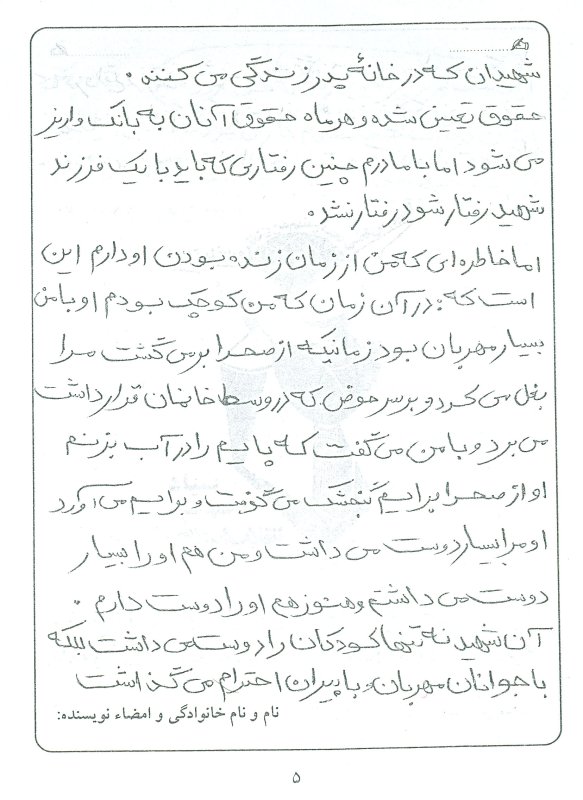 شهیدان که در خانهٔ پدر زندگی می کنند.
حقوق تعیین شده و هر ماه حقوق آنان به بانک واریز
می شود اما با مادرم چنین رفتاری که باید با یک فرزند
شهید رفتار شود رفتار نشد.
اما خاطره ای که من از زمان زنده بودن او دارم این
است که: در آن زمان که من کوچک بودم او با من
بسیار مهربان بود زمانیکه از صحرا برمی گشت مرا
بغل می کرد و بر سر حوض که در وسط خانمان قرار داشت
می برد و با من می گفت که پایم را در آب بزنم
او از صحرا برایم گنجشک می گرفت و برایم می آورد
او مرا بسیار دوست می داشت و من هم او را بسیار
دوست می داشتم و هنوز هم او را دوست دارم.
آن شهید نه تنها کودکان را دوست می داشت بلکه
با جوانان مهربان و با پیران احترام می گذاشت
نام و نام خانوادگی و امضاء نویسنده:
۵